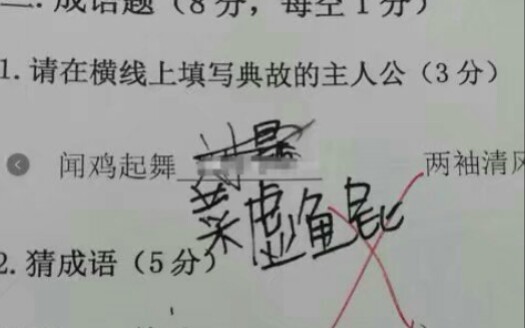 二.成语题（8分，每空1分）
1.请在横线上填写典故的主人公（3分）
闻鸡起舞 两袖清风
菜虚鲲
2.猜成语（5分）